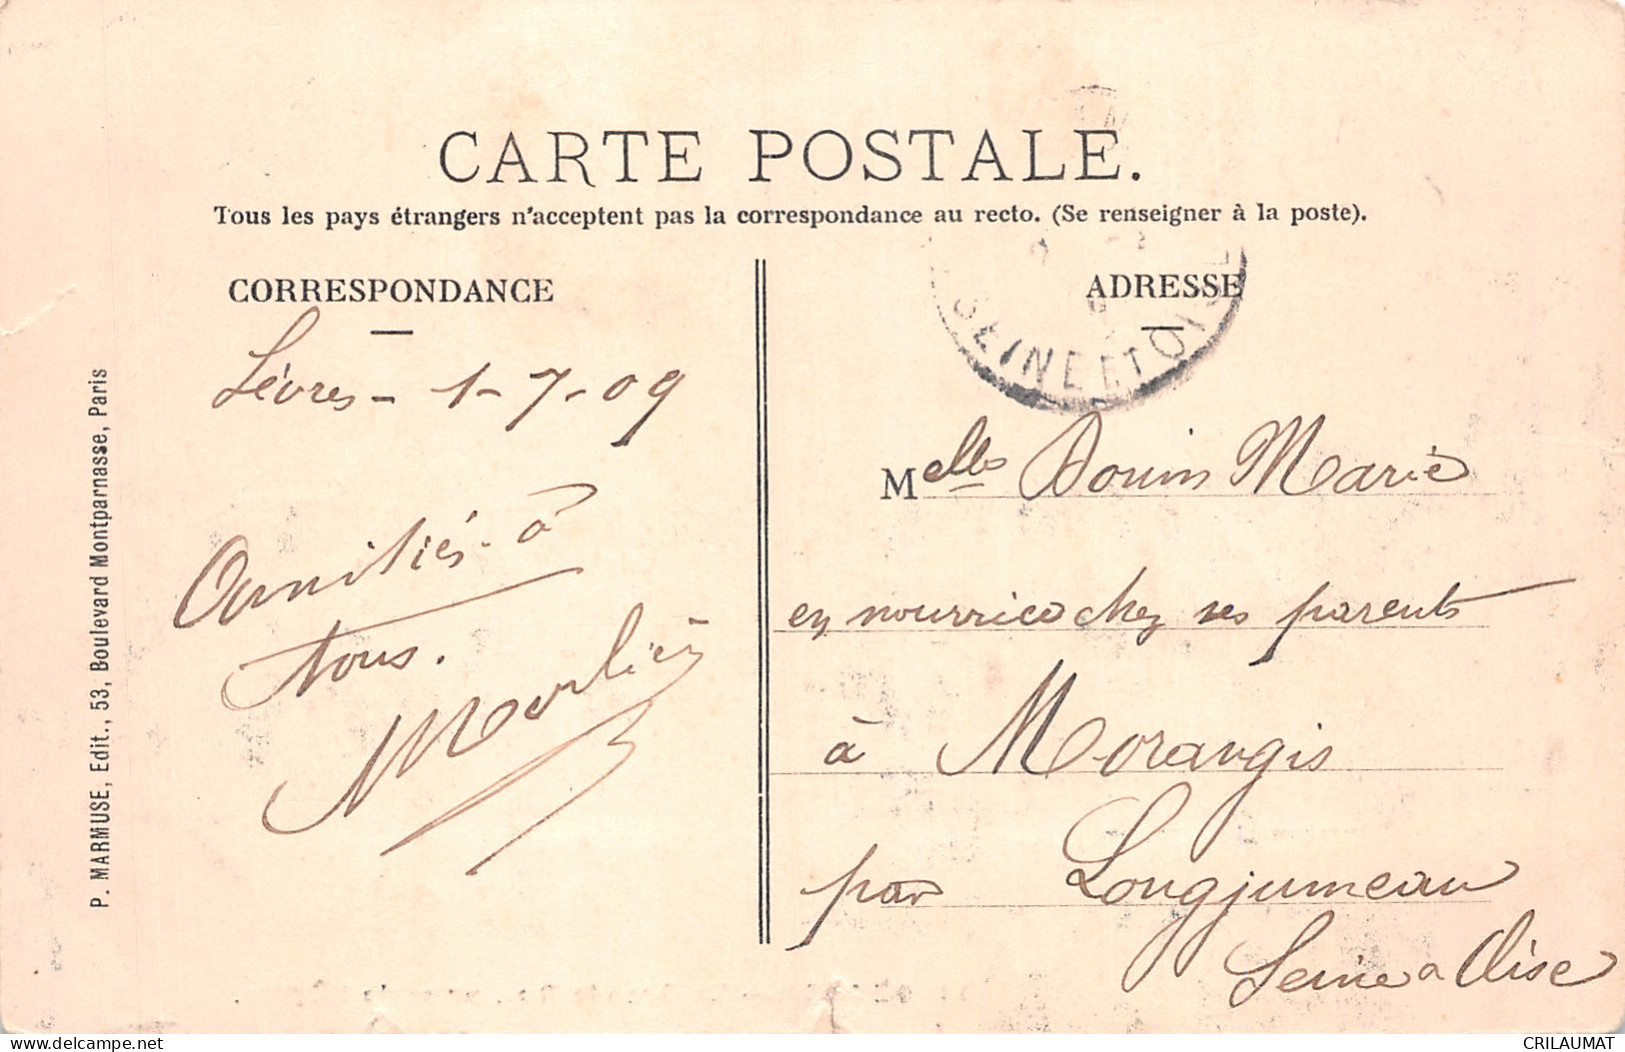 CARTE POSTALE.
Tous les pays étrangers n'acceptent pas la correspondance au recto. (Se renseigner à la poste).
CORRESPONDANCE
Sèvres - 1-7-09
Amitiés à
tous.
ADRESSE
SEINE ET OISE
Melle Douin Marie
en nourrice chez ses parents
à Morangis
par Longjumeau
Seine & Oise
P. MARMUSE, Edit., 53, Boulevard Montparnasse, Paris
www.delcampe.net
CRILAUMAT